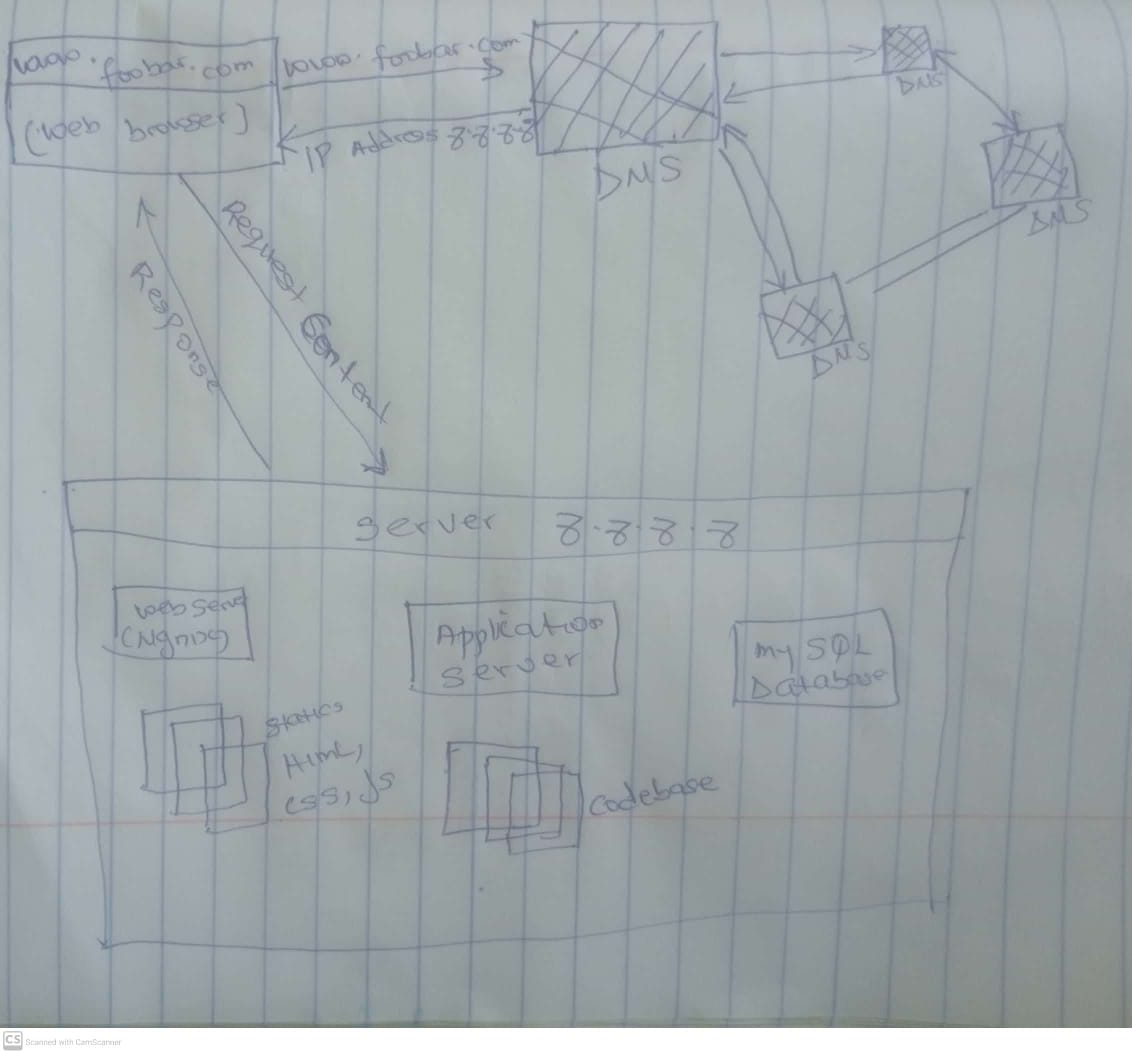 www.foobar.com
(web browser)
www.foobar.com
IP Address 8.8.8.8
DNS
DNS
DNS
DNS
Request Content
Response
Server 8.8.8.8
Web Serve
(Nginx)
Application
Server
My SQL
Database
Statics
HTML,
CSS, JS
Codebase
CS Scanned with CamScanner